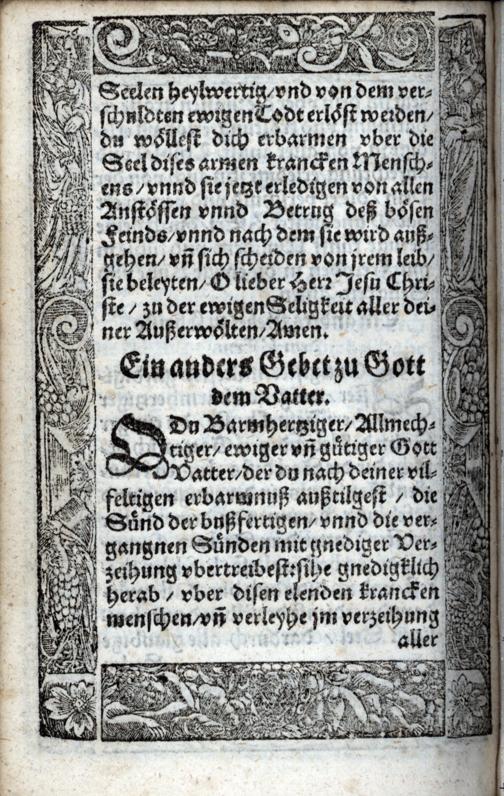 Seelen heylwertig/vnd von dem ver⸗
schuldten ewigen Todt erlöst werden/
du wöllest dich erbarmen vber die
Seel dises armen krancken Mensch⸗
ens/vnnd sie jetzt erledigen von allen
Anstössen vnnd Betrug deß bösen
Feinds/vnnd nach dem sie wird auß⸗
gehen/vn̄ sich scheiden von jrem leib/
sie beleyten/O lieber Herr Jesu Chri⸗
ste/zu der ewigen Seligkeit aller dei⸗
ner Außerwölten/Amen.
Ein anders Gebet zu Gott
dem Vatter.
O Du Barmhertziger/Allmech⸗
tiger/ewiger vn̄ gütiger Gott
Vatter/der du nach deiner vil⸗
feltigen erbarmnuß außtilgest/die
Sünd der bußfertigen/vnnd die ver⸗
gangnen Sünden mit gnediger Ver⸗
zeihung vbertreibest:sihe gnedigklich
herab/vber disen elenden krancken
menschen/vn̄ verleyhe jm verzeihung
aller